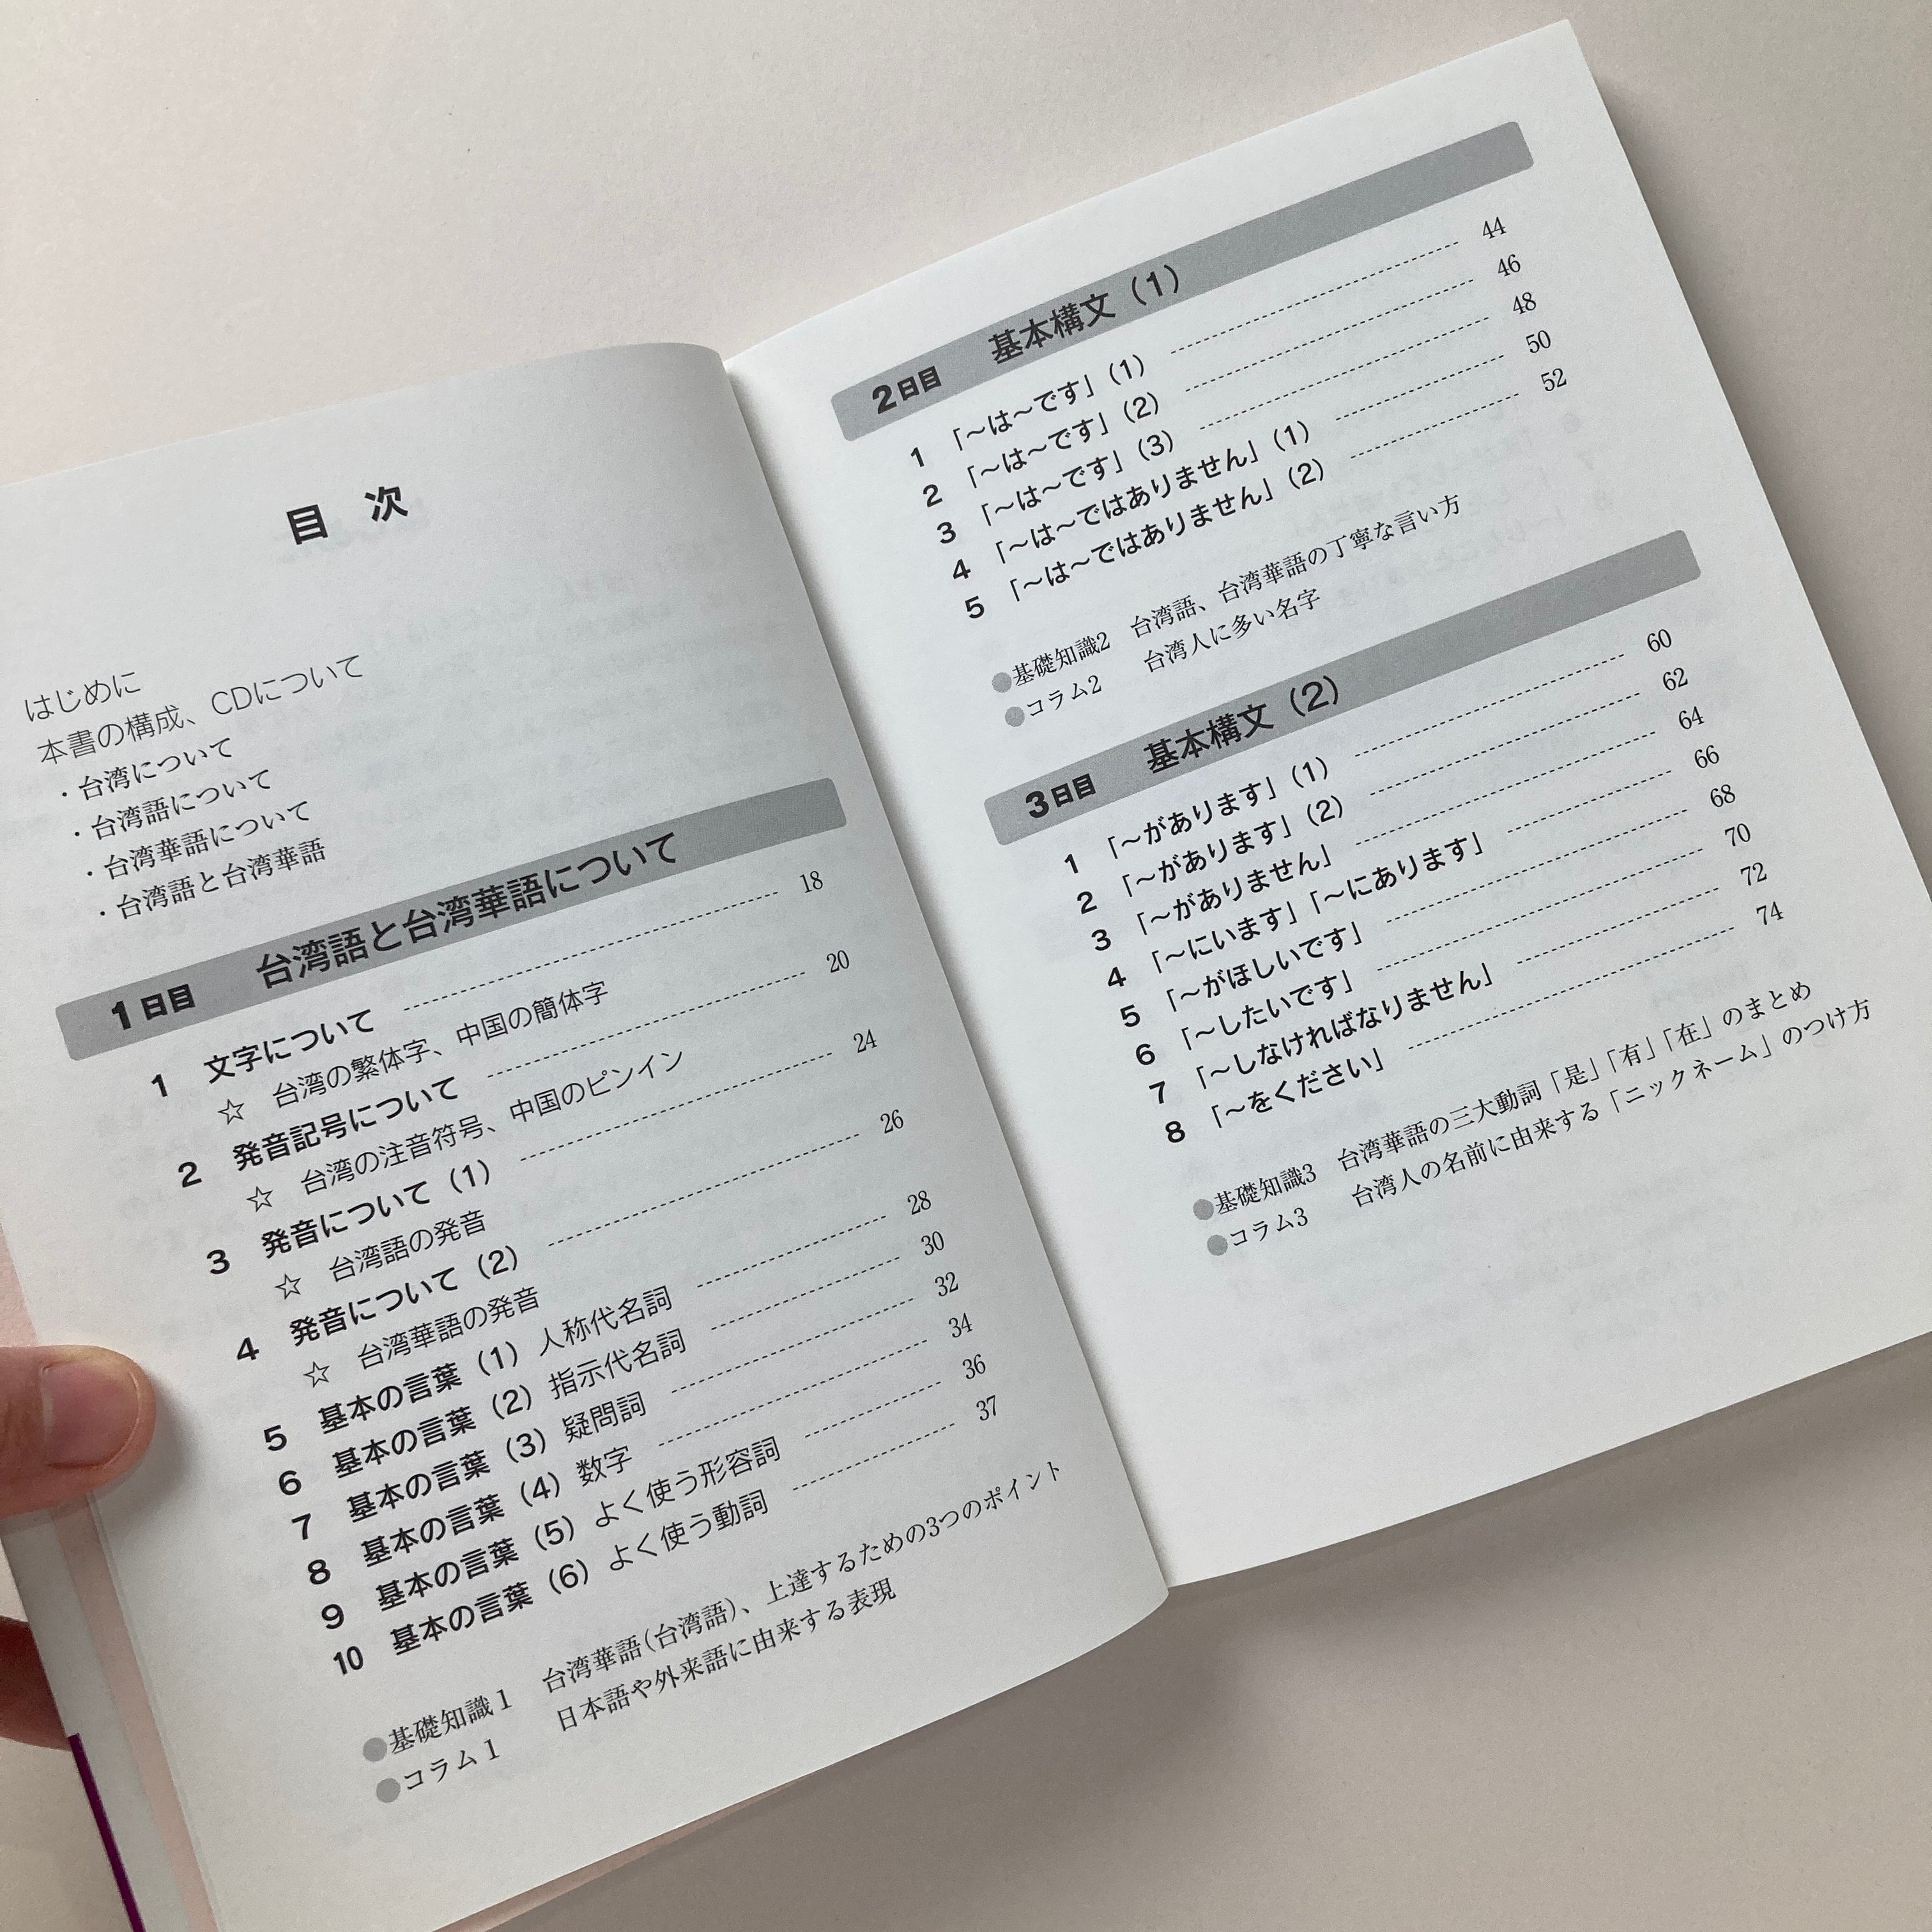 目 次
はじめに
本書の構成、CDについて
・台湾について
・台湾語について
・台湾華語について
・台湾語と台湾華語
1日目 台湾語と台湾華語について
1 文字について 18
☆ 台湾の繁体字、中国の簡体字
2 発音記号について 20
☆ 台湾の注音符号、中国のピンイン
3 発音について（1） 24
☆ 台湾語の発音
4 発音について（2） 26
☆ 台湾華語の発音
5 基本の言葉（1）人称代名詞 28
6 基本の言葉（2）指示代名詞 30
7 基本の言葉（3）疑問詞 32
8 基本の言葉（4）数字 34
9 基本の言葉（5）よく使う形容詞 36
10 基本の言葉（6）よく使う動詞 37
●基礎知識1 台湾華語(台湾語)、上達するための3つのポイント
●コラム1 日本語や外来語に由来する表現
2日目 基本構文（1）
1 「～は～です」（1） 44
2 「～は～です」（2） 46
3 「～は～です」（3） 48
4 「～は～ではありません」（1） 50
5 「～は～ではありません」（2） 52
●基礎知識2 台湾語、台湾華語の丁寧な言い方
●コラム2 台湾人に多い名字
3日目 基本構文（2）
1 「～があります」（1） 60
2 「～があります」（2） 62
3 「～がありません」 64
4 「～にいます」「～にあります」 66
5 「～がほしいです」 68
6 「～したいです」 70
7 「～しなければなりません」 72
8 「～をください」 74
●基礎知識3 台湾華語の三大動詞「是」「有」「在」のまとめ
●コラム3 台湾人の名前に由来する「ニックネーム」のつけ方